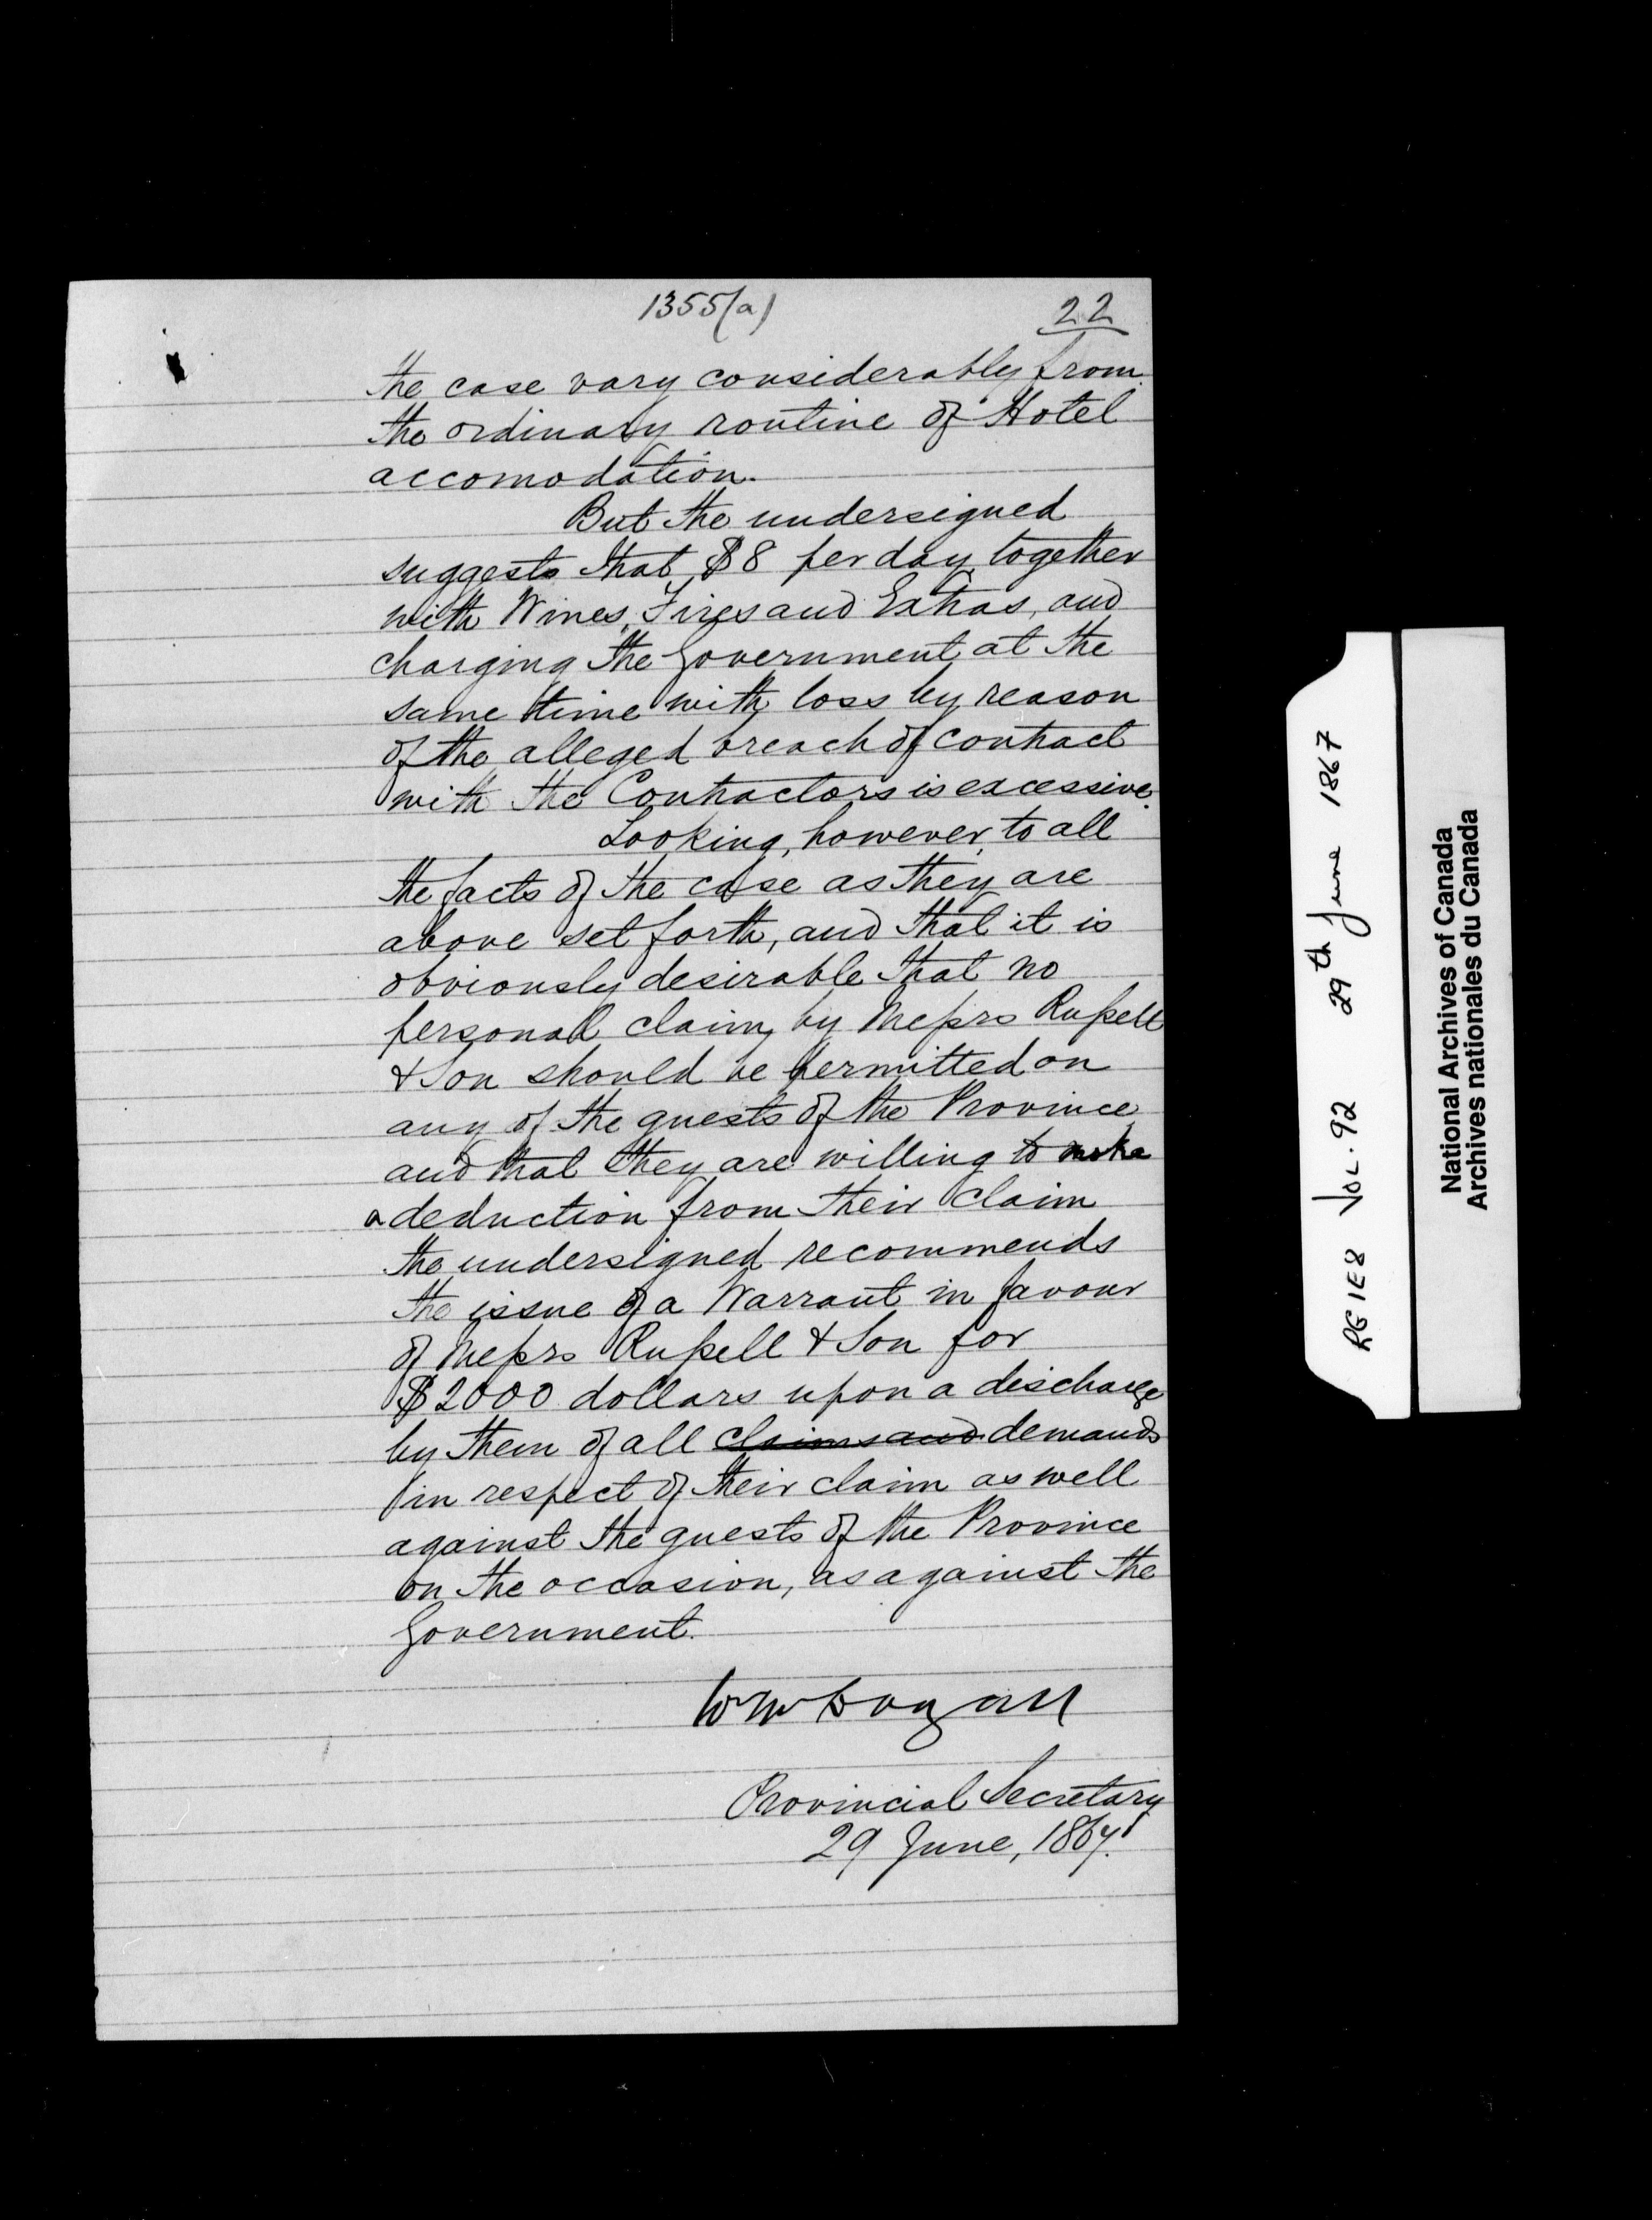 1355(a)
22
the case vary considerably from
the ordinary routine of Hotel
accomodation.
But the undersigned
suggests that $8 per day, together
with Wines, Fires and Extras, and
charging the Government at the
same time with loss by reason
of the alleged breach of contract
with the Contractors is excessive.
Looking, however, to all
the facts of the case as they are
above set forth, and that it is
obviously desirable that no
personal claim by Messrs Russell
& Son should be permitted on
any of the guests of the Province
and that they are willing to make
a deduction from their claim
the undersigned recommends
the issue of a Warrant in favour
of Messrs Russell & Son for
$2000 dollars upon a discharge
by them of all claims and demands
in respect of their claim as well
against the guests of the Province
on the occasion, as against the
Government.
Provincial Secretary
29 June, 1867.
RG 1 E8 VOL. 92 29th June 1867
National Archives of Canada
Archives nationales du Canada